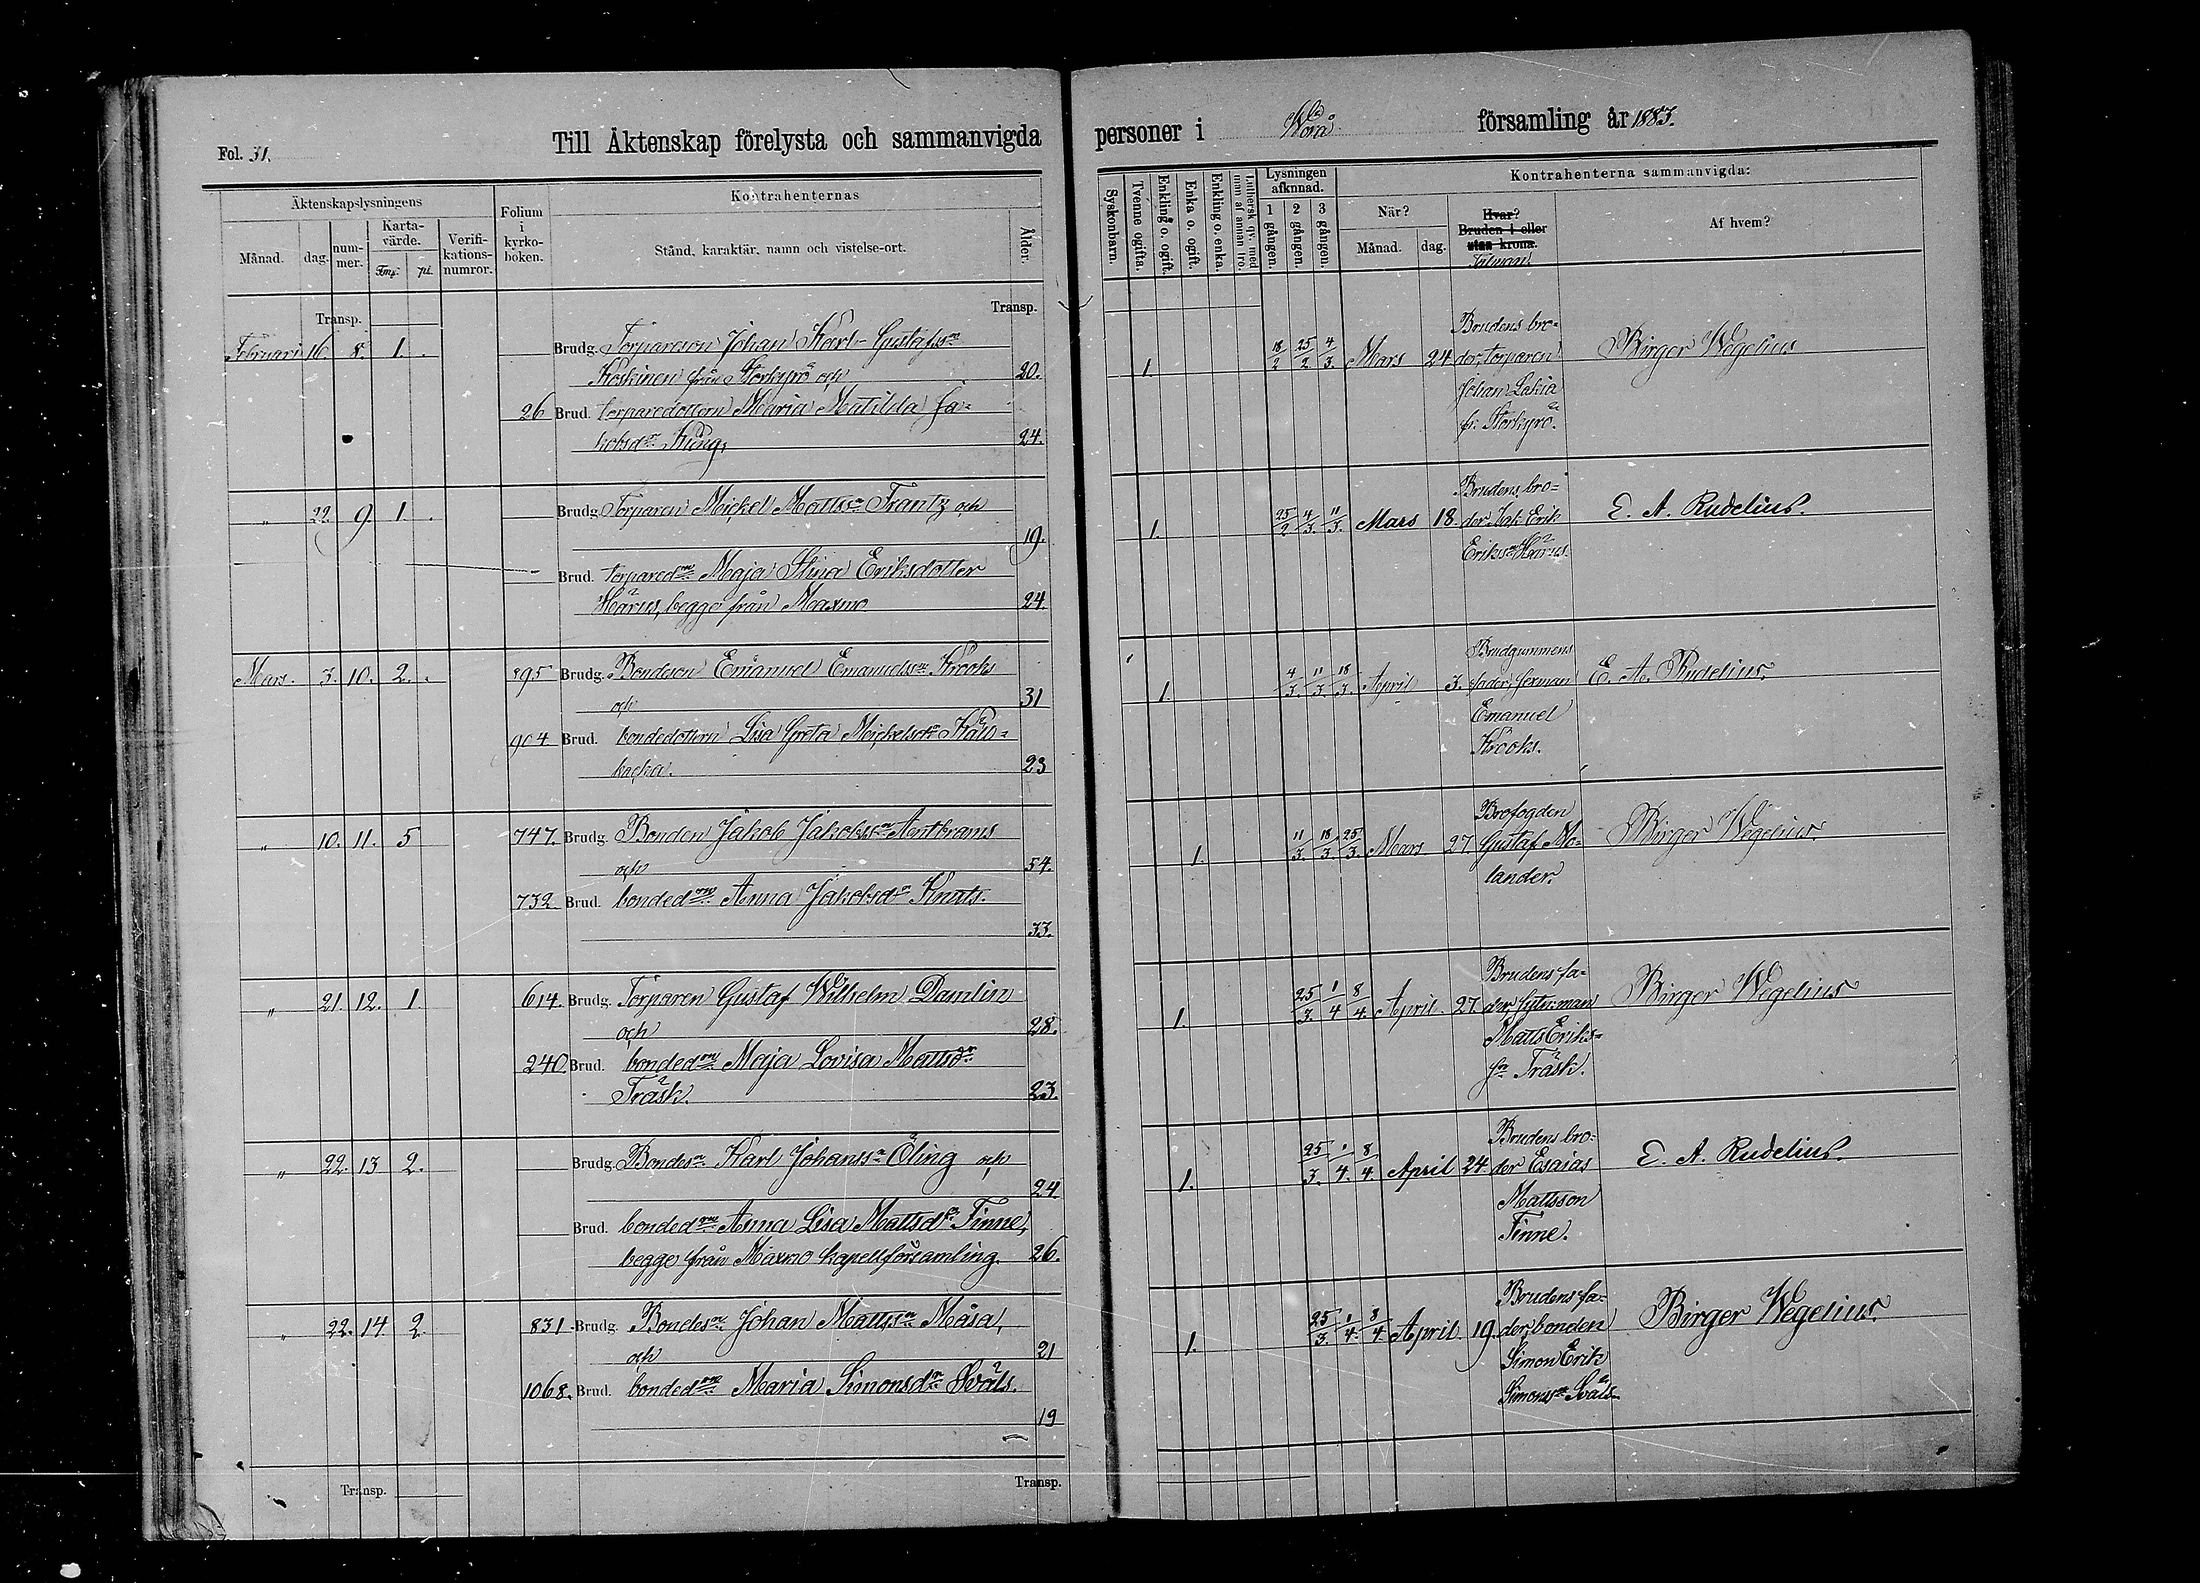 Fol. 31.
Till Äktenskap förelysta och sammanvigda
Äktenskapslysningens
Folium i kyrko-boken.
Kontrahenternas
Månad.
dag.
num-mer.
Karta-värde.
Fmk.
pi.
Verifi-kations-numror.
Stånd, karaktär, namn och vistelse-ort.
Ålder.
Transp.
Transp.
Februari 16. 8. 1. Brudg. Torpareson Johan Karl Gustafsson
Koskinen från Storkyrö och 20.
26 Brud. torparedottern Maria Matilda Ja-
kobsdr Kung, 24.
" 22. 9. 1. Brudg. Torparen Mickel Mattsn Frantz och
19.
Brud. torparedn Maja Stina Eriksdotter
Härus, begge från Maxmo 24.
Mars. 3. 10. 2. 895 Brudg. Bondeson Emanuel Emanuelsn Krooks
och 31
904 Brud. bondedottern Lisa Greta Mickelsdr
backa. 23
" 10. 11. 5 747. Brudg. Bonden Jakob Jakobsn Antbrams
och 54.
732 Brud. bondedn Anna Jakobsdr Knuts.
33.
" 21. 12. 1. 614. Brudg. Torparen Gustaf Wilhelm Damlin
och 28.
240. Brud. bondedn Maja Lovisa Mattsdr
Träsk. 23.
" 22. 13 2. Brudg. Bondesn Karl Johanssn Öling och
24
Brud. bondedn Anna Lisa Mattsdr Finne,
begge från Maxmo kapellförsamling. 26.
" 22. 14. 2. 831. Brudg. Bondesn Johan Mattssn Måsa,
och 21
1068. Brud. bondedn Maria Simonsdr Sväls.
19
Transp.
Transp.
personer i Wörå församling år 1883.
Syskonbarn.
Tvenne ogifta.
Enkling o. ogift.
Enka o. ogift.
Enkling o. enka.
Luthersk qv. med man af annan tro.
Lysningen afknnad.
1 gången.
2 gången.
3 gången.
Kontrahenterna sammanvigda:
När?
Månad.
dag.
Hvar?
Bruden i eller
utan krona.
Talman
Af hvem?
1. 18/2 25/2 4/3. Mars 24 Brudens bro-
der, torparen
Johan Lakia
fr. Storkyrö.
Birger Wegelius
1. 25/2 4/3. 11/3. Mars 18. Brudens bro-
der Jak. Erik
Eriksn Härus.
E. A. Rudelius.
1. 4/3. 11/3 18/3. April 3. Brudgummens
fader, sexman
Emanuel
Krooks.
E. A. Rudelius.
1. 11/3. 18/3. 25/3. Mars 27. Brofogden
Gustaf Mo-
lander.
Birger Wegelius.
1. 25/3. 1/4 8/4. April. 27. Brudens fa-
der,
Matts Eriks-
sn Träsk.
Birger Wegelius
1. 25/3. 1/4. 8/4. April 24. Brudens bro-
der Esaias
Mattsson
Finne.
E. A. Rudelius.
1. 25/3. 1/4. 8/4. April. 19. Brudens fa-
der, bonden
Simon Erik
Simonsn Sväls.
Birger Wegelius.